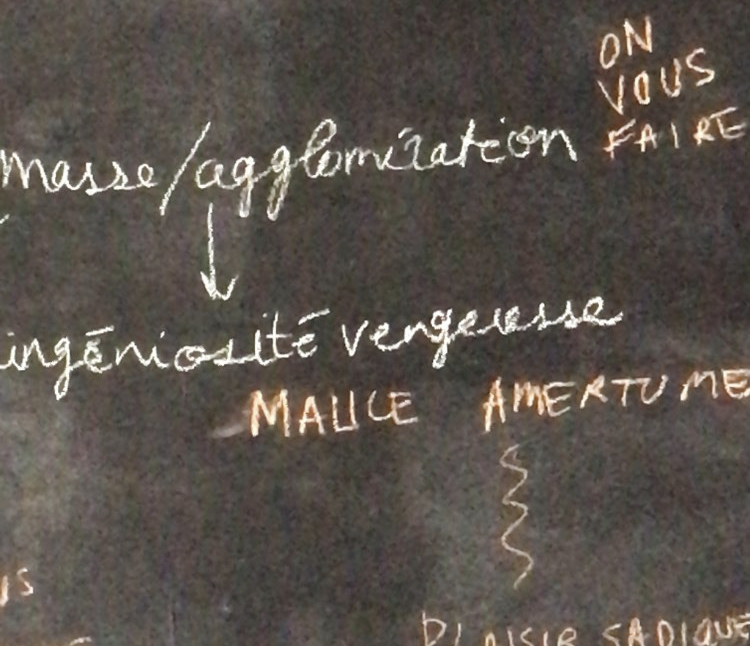 ON
VOUS
FAIRE
masse/agglomération
ingéniosité vengeresse
MALICE AMERTUME
PLAISIR SADIQUE